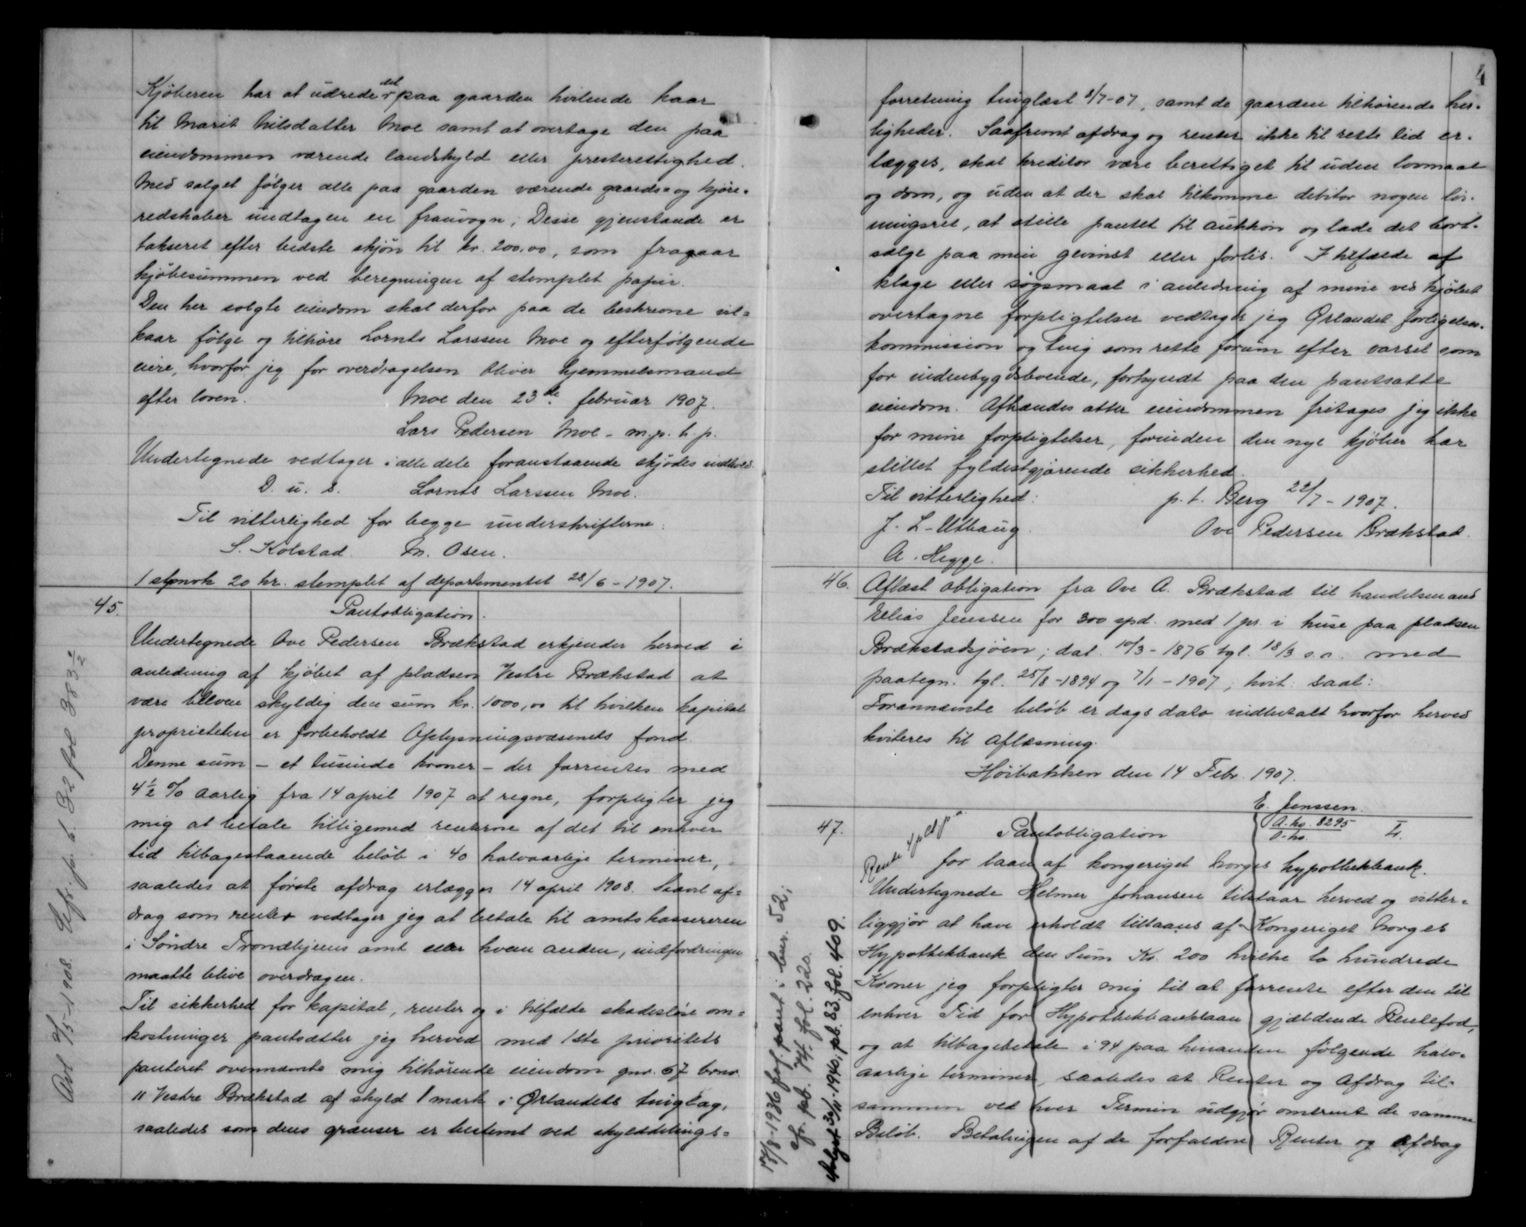 Kjöberen har at udrede det paa gaarden hvilende kaar
til Marit Nilsdatter Moe samt at overtage den paa
eiendommen værende landskyld eller presterettighed.
Med salget følger alle paa gaarden værende gaards- og kjöre-
redskaber undtagen en fravogn; Disse gjenstande er
takseret efter bedste skjön til kr. 200,00, som fragaar
kjöbesummen ved beregningen af stemplet papir.
Den her solgte eiendom skal derfor paa de beskrevne vil-
kaar følge og tilhöre Lornts Larssen Moe og efterfølgende
eiere, hvorfor jeg for overdragelsen bliver hjemmelsmand
efter loven. Moe den 23de februar 1907.
Lars Pedersen Moe - m. p. p.
Undertegnede vedtager i alle dele foranstaaende skjödes indhold
D. u. s. Lornts Larssen Moe.
Til vitterlighed for begge underskrifterne:
S. Kolstad M. Osen.
1 stpmrk 20 kr. stemplet af departementet 28/6 - 1907.
45. Pantobligation.
Undertegnede Ove Pedersen Brækstad erkjender herved i
anledning af kjöbet af pladsen Vestre Brækstad at
være bleven skyldig den sum kr. 1000,00 til hvilken kapital
proprieteten er forbeholdt Oplysningsvæsenets fond.
Denne sum - et tusinde kroner - der forrentes med
4½ % aarlig fra 14 april 1907 at regne, forpligter jeg
mig at betale tilligemed renterne af det til enhver
tid tilbagestaaende beløb i 40 halvaarlige terminer,
saaledes at förste afdrag erlægges 14 april 1908. Saavel af-
drag som renter vedtager jeg at betale til amtskassereren
i Söndre Trondhjems amt eller hvem anden, indfordringen
maatte blive overdragen.
Til sikkerhed for kapital, renter og i tilfælde skadeslöse om-
kostninger pantsætter jeg herved med 1ste prioritets
panteret ovennævnte mig tilhörende eiendom gnr. 67 brno
11 Vestre Brækstad af skyld 1 mark i Ørlandets tinglag,
saaledes som dens grænser er bestemt ved skylddelings-
Avl 9/5-1908. Ref. p. b 82 fol 383½
4
forretning tinglæst 2/7-07, samt de gaarden tilhörende her-
ligheder. Saafremt afdrag og renter ikke til rette tid er-
lægges, skal kreditor være berettiget til uden lovmaal
og dom, og uden at der skal tilkomme debitor nogen løs-
ningsret, at stille pantet til auktion og lade det bort-
sælge paa min gevinst eller forlis. I tilfælde af
klage eller søgsmaal i anledning af mine ved kjöbet
overtagne forpligtelser vedtager jeg Ørlandet forligelses-
kommission og ting som rette forum efter varsel som
for indenbygdsboende, forkyndt paa den pantsatte
eiendom. Afhændes atter eiendommen fritages jeg ikke
for mine forpligtelser, forinden den nye kjöber har
stillet fyldestgjørende sikkerhed.
Til vitterlighed: p. t. Berg 22/7 - 1907.
J. L. Utbaug. Ove Pedersen Brækstad.
A. Hegge.
46. Aflæst obligation fra Ove A. Brækstad til handelsmand
Elias Jenssen for 300 spd. med 1 pr. i huse paa pladsen
Brækstadsjöen; dat. 10/3-1876 tgl. 18/3 s. a. med
paategn. tgl. 25/8-1894 og 7/1-1907; kvit. saal:
Forannævnte beløb er dags dato indbetalt hvorfor herved
kviteres til aflæsning.
Höibakken den 14 Febr. 1907.
E. Jenssen.
47. Pantobligation A. No. 8295 L.
for laan af kongeriget Norges hypothekbank.
Undertegnede Helmer Johansen tilstaar herved og vitter-
liggjør at have erholdt tillaans af Kongeriget Norges
Hypothekbank den Sum Kr. 200 hvilke to hundrede
Kroner jeg forpligter mig til at forrente efter den til
enhver Tid for Hypothekbanklaan gjældende Rentefod,
og at tilbagebetale i 94 paa hinanden følgende halv-
aarlige terminer, saaledes at Renter og Afdrag til-
sammen ved hver Termin udgjør omtrent de samme
Beløb. Betalingen af de forfaldne Renter og Afdrag
17/8-1936 pant i bnr. 52,
cfr. pb. 74. fol. 220.
Avlyst 30/1-1940, pb. 83. fol. 409.